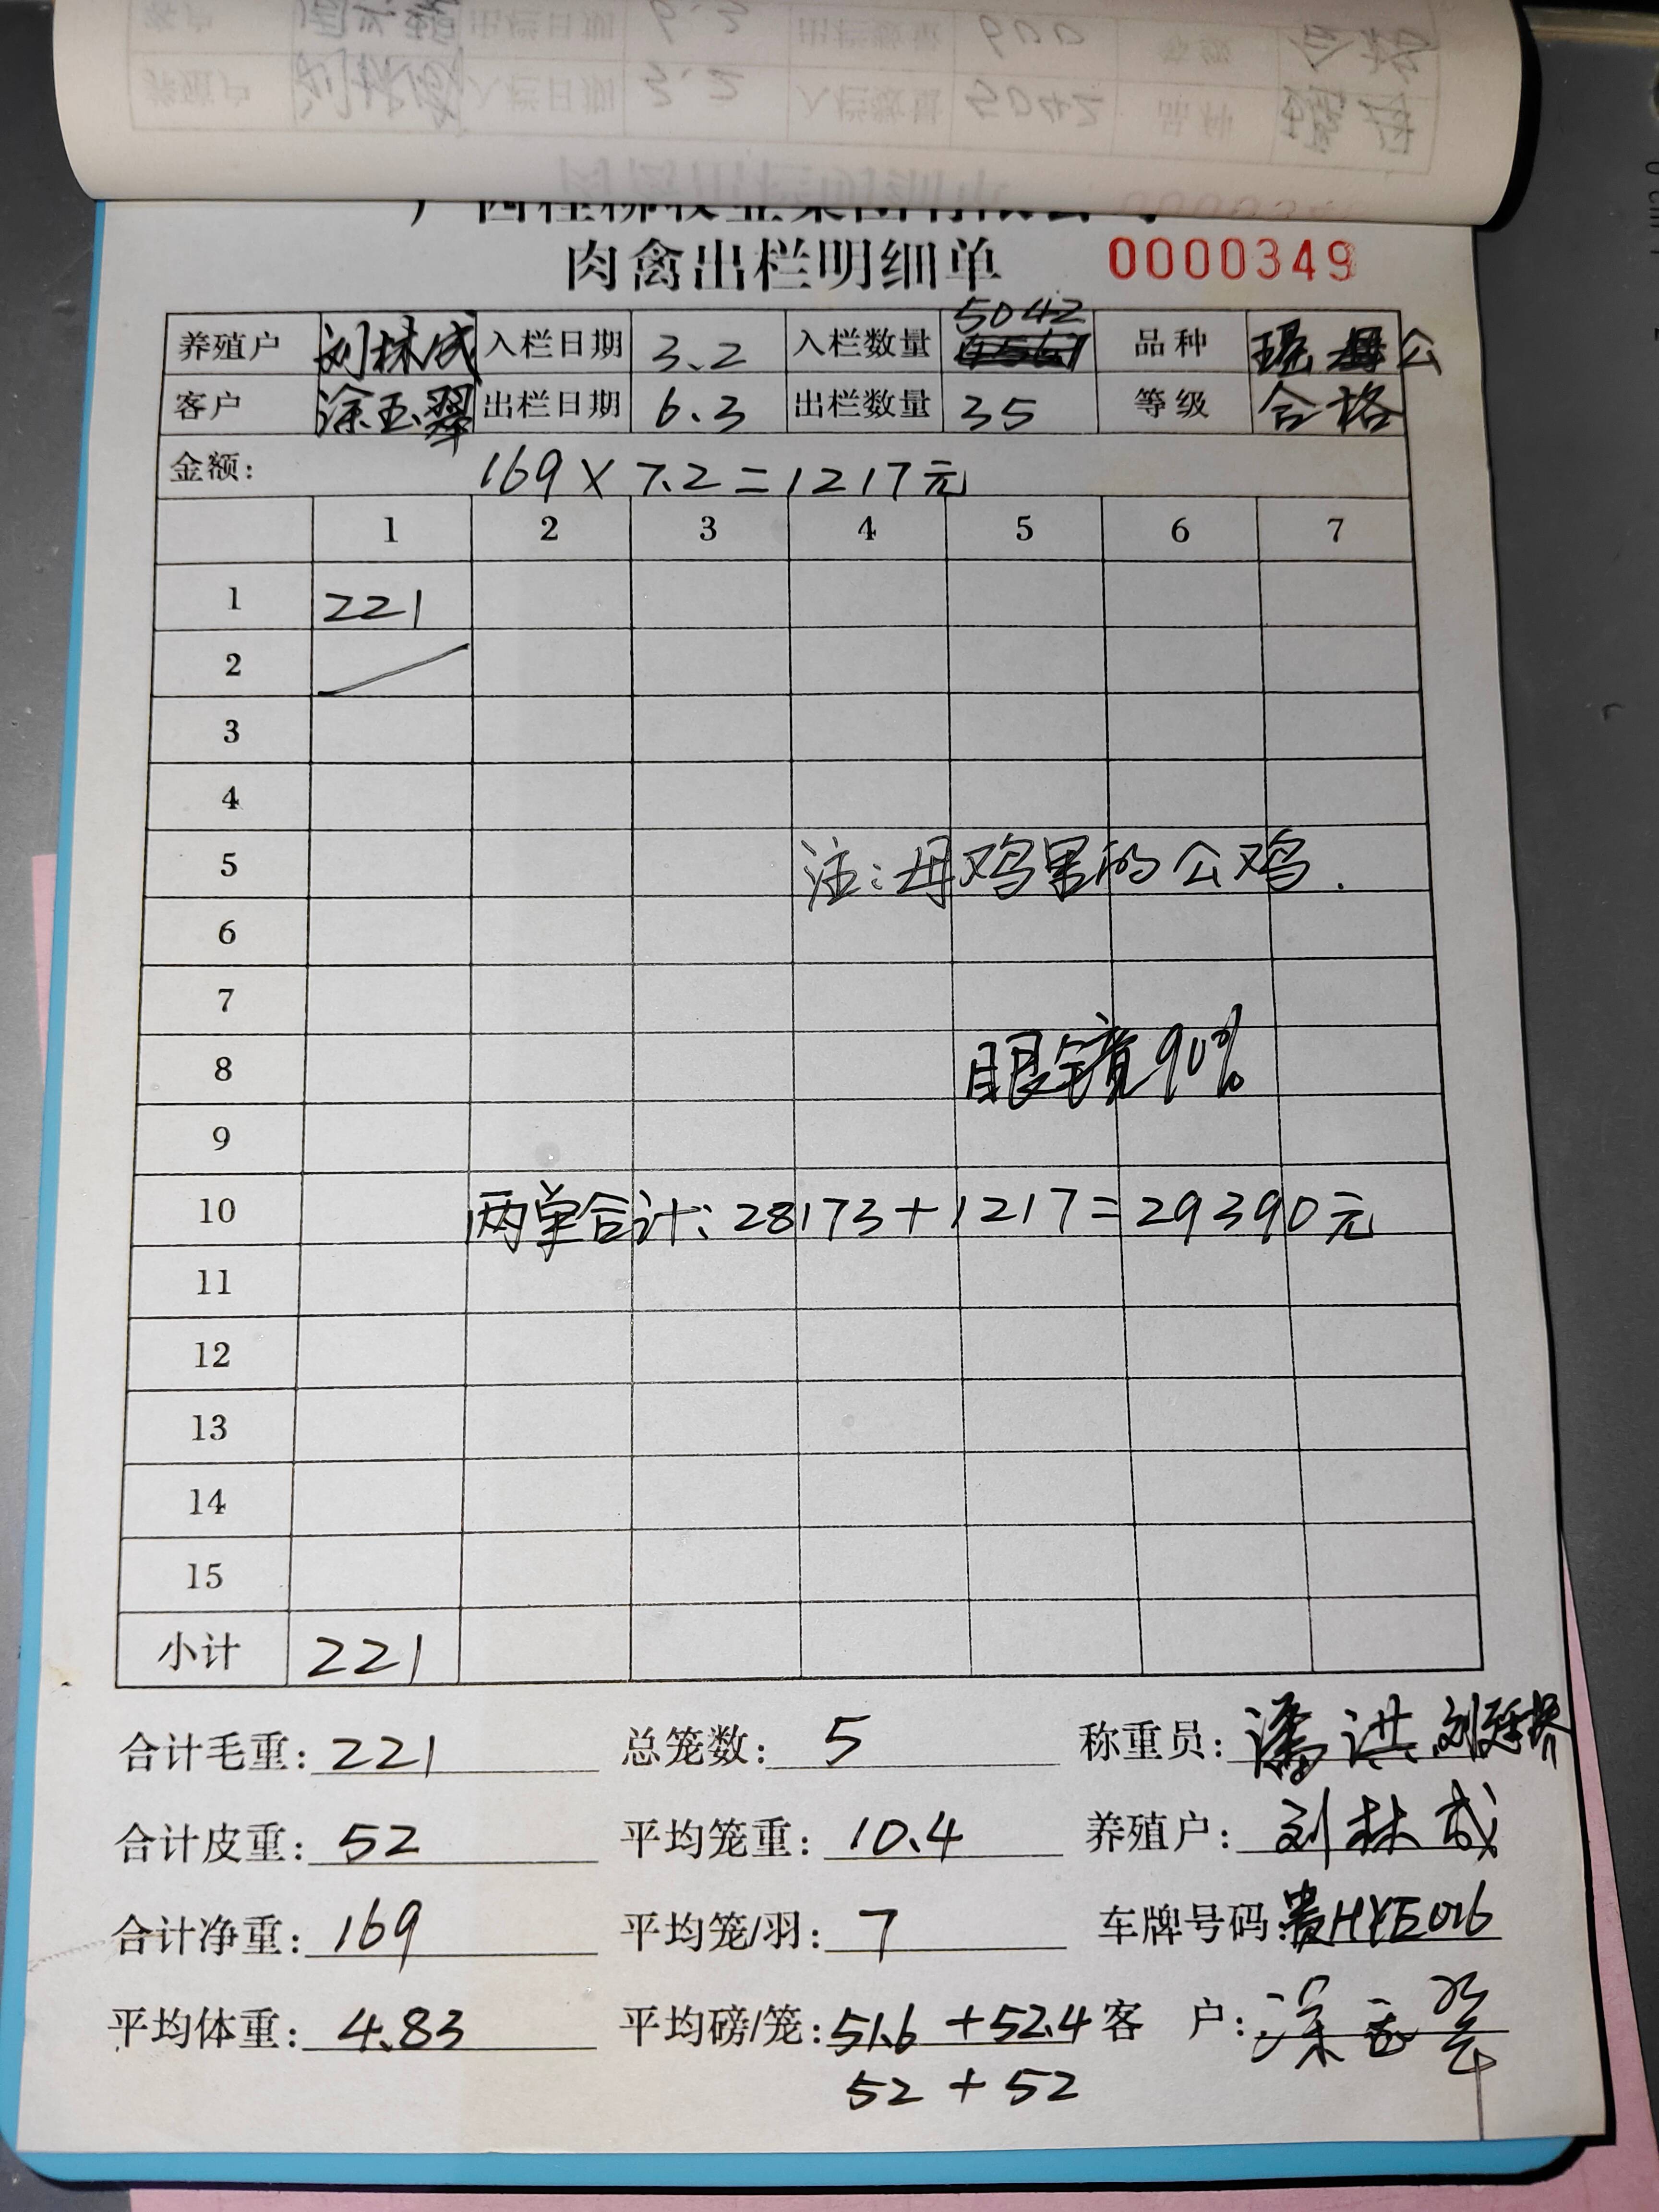 肉禽出栏明细单 0000349
养殖户 刘林成 入栏日期 3.2 入栏数量 5042 品种 瑶 公
客户 涂玉翠 出栏日期 6.3 出栏数量 35 等级 合格
金额: 169×7.2=1217元
1 2 3 4 5 6 7
1 221
2
3
4
5 注:母鸡里的公鸡.
6
7
8 眼镜90%
9
10 两单合计:28173+1217=29390元
11
12
13
14
15
小计 221
合计毛重:221 总笼数:5 称重员:潘洪
合计皮重:52 平均笼重:10.4 养殖户:刘林成
合计净重:169 平均笼/羽:7 车牌号码:贵HYE016
平均体重:4.83 平均磅/笼:51.6+52.4 客户:涂玉翠
52+52